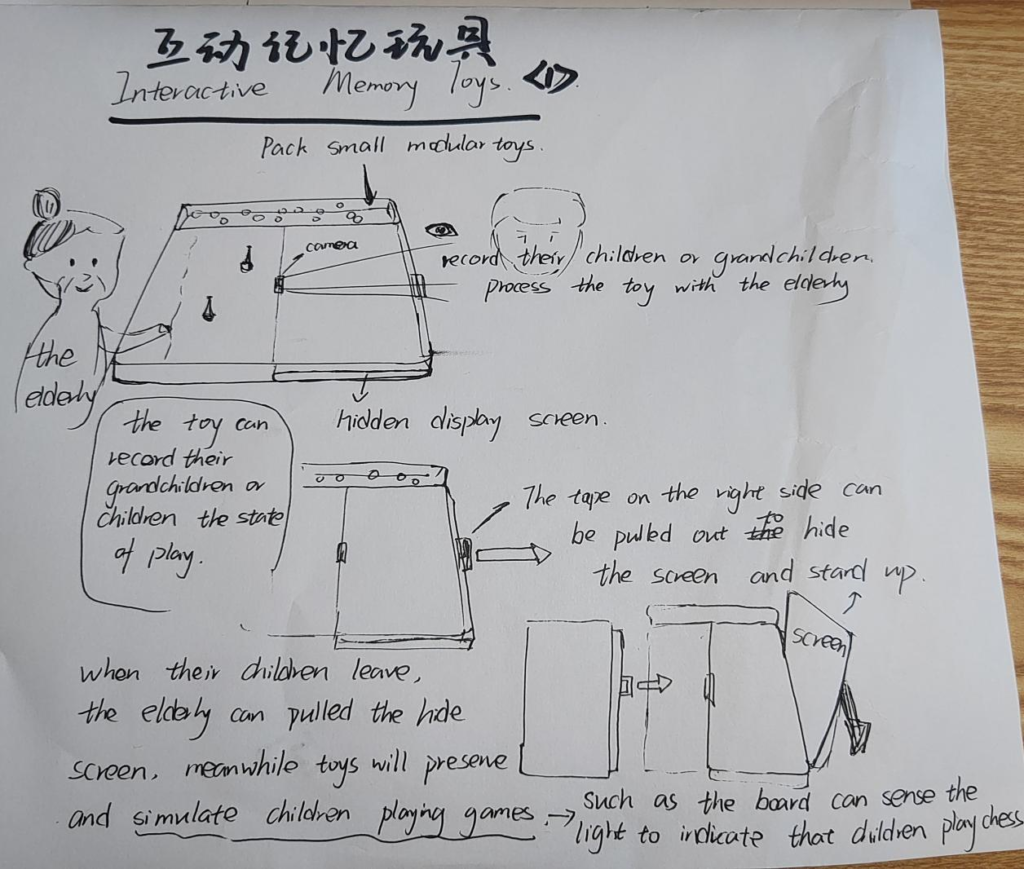 互动记忆玩具
Interactive Memory Toys. <1>.
Pack small modular toys.
camera
record their children or grandchildren.
process the toy with the elderly
the
elderly
hidden display screen.
the toy can
record their
grandchildren or
children the state
of play.
The tape on the right side can
be pulled out to hide
the screen and stand up.
screen
when their children leave,
the elderly can pulled the hide
screen, meanwhile toys will preserve
and simulate children playing games.
such as the board can sense the
light to indicate that children play chess